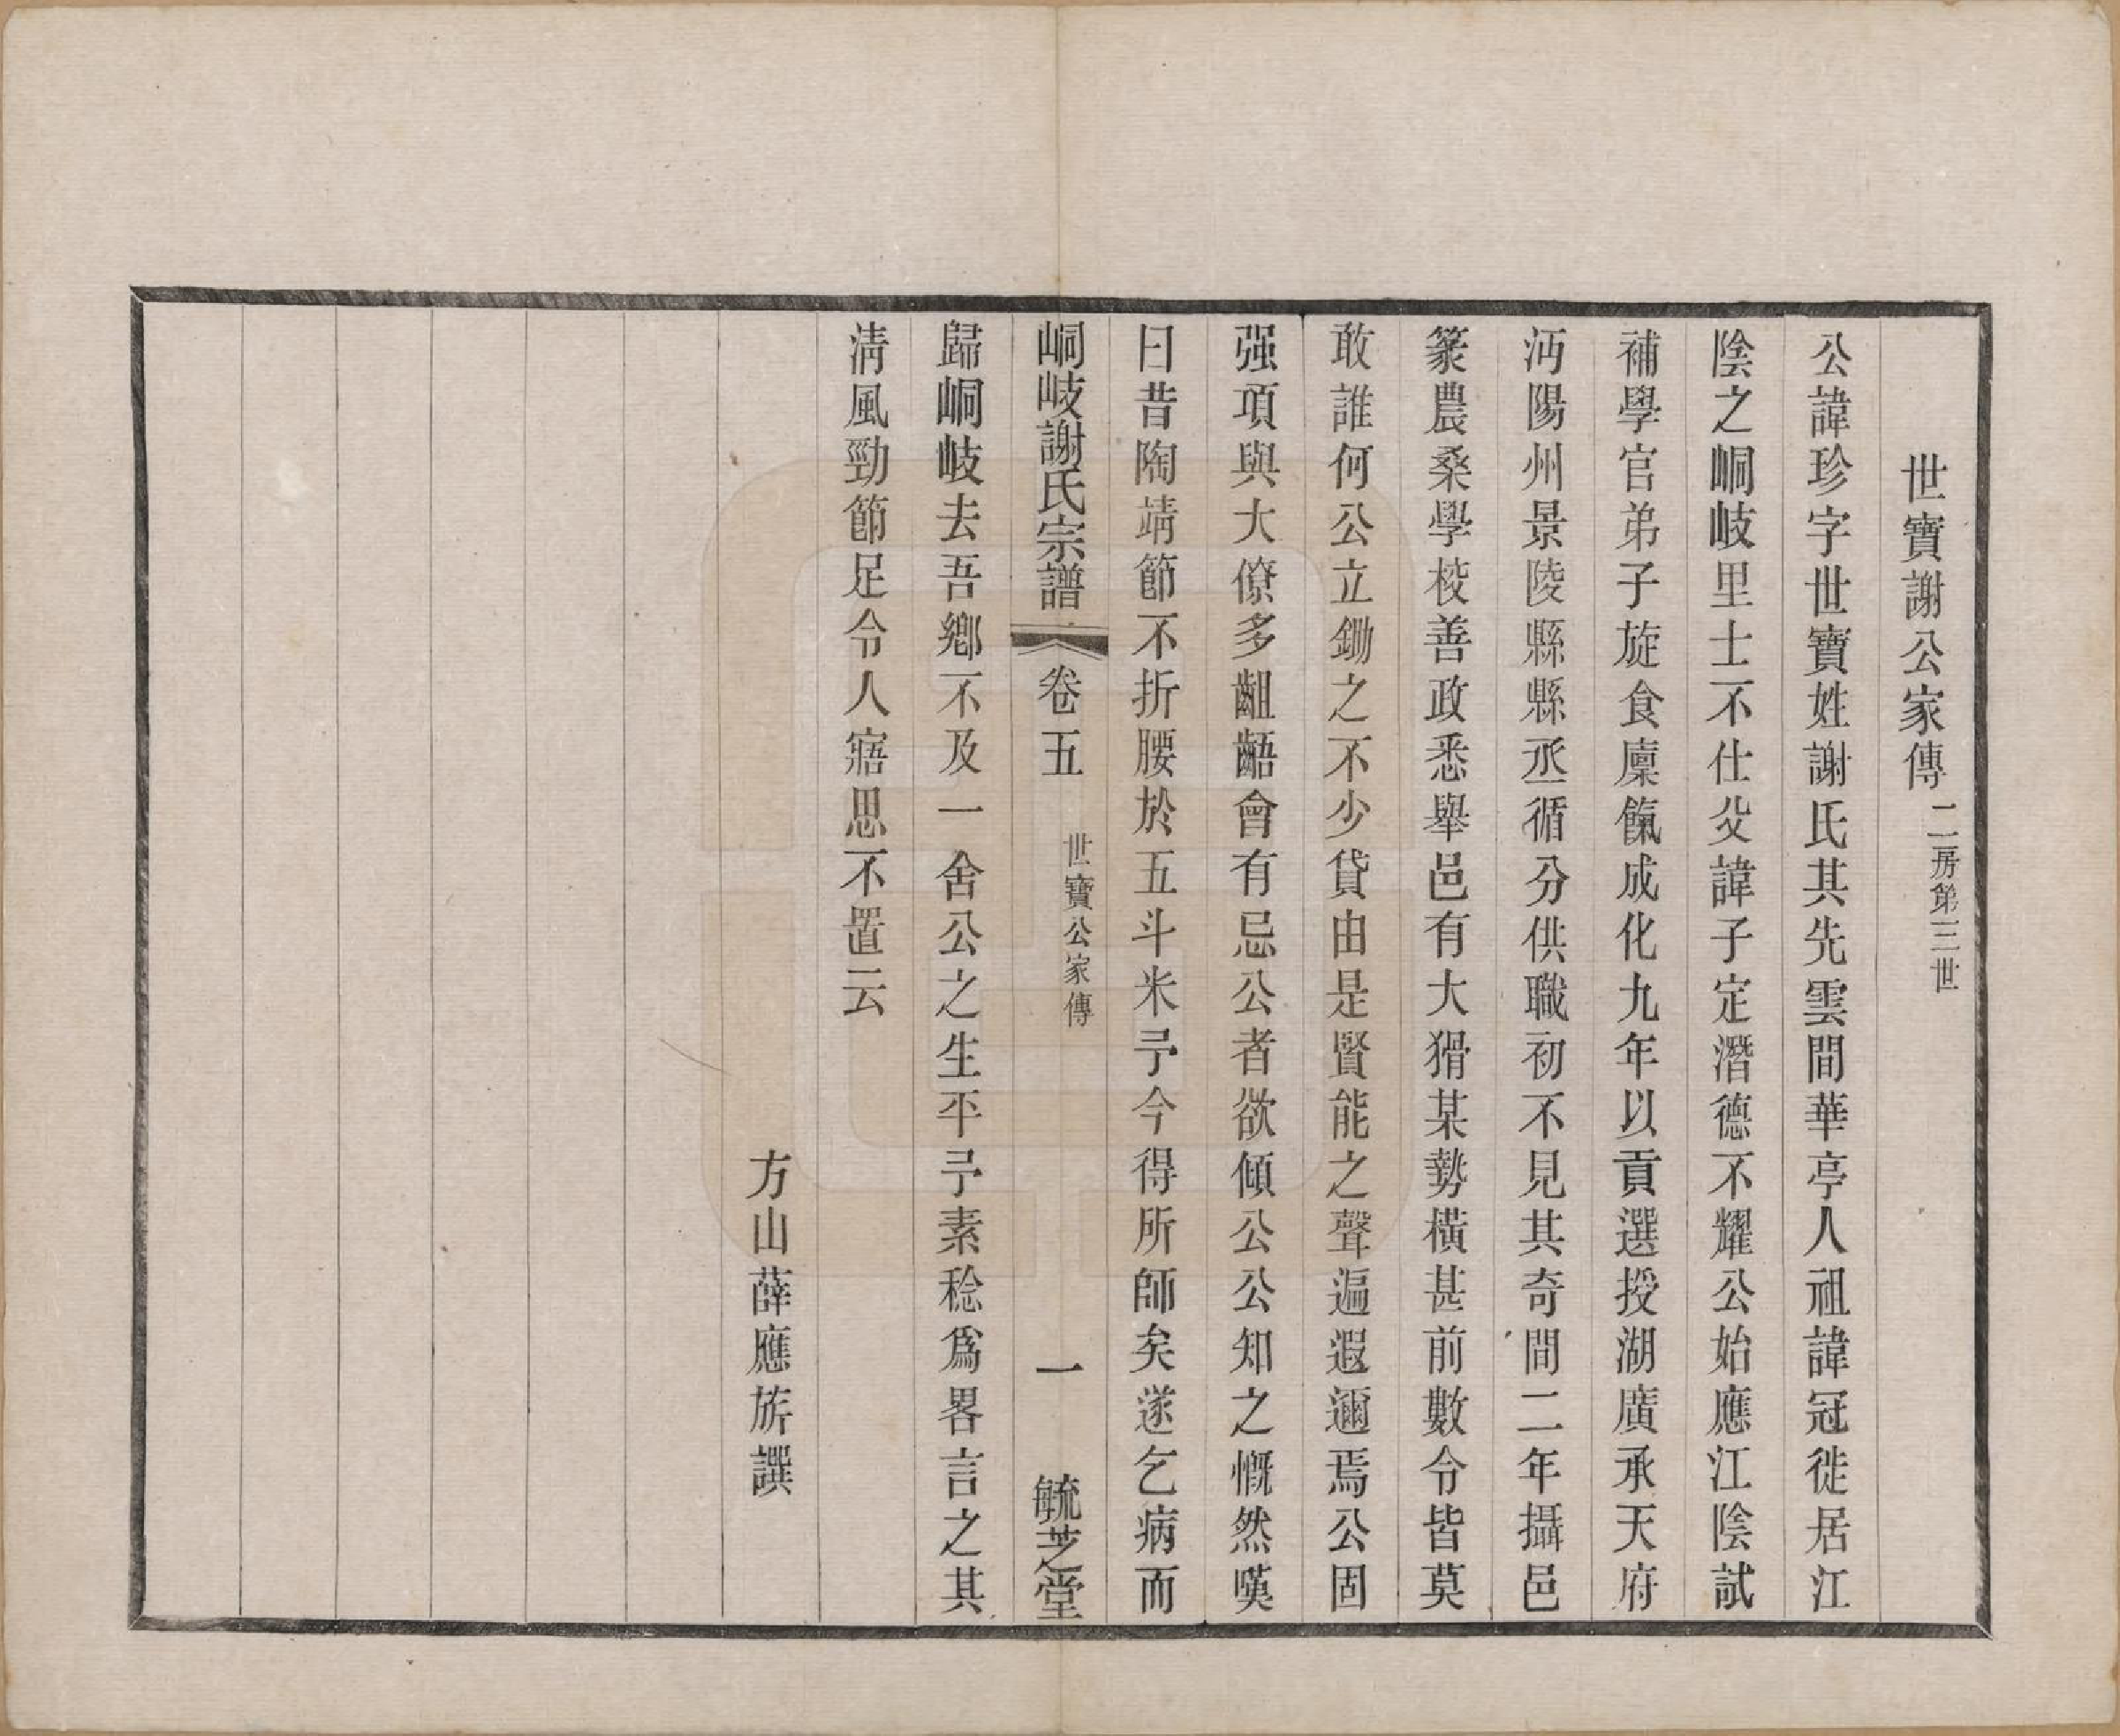 世寶謝公家傳二房第三世
公諱珍字世寶姓謝氏其先雲間華亭人祖諱冠徙居江
陰之峒岐里士不仕父諱子定潛德不耀公始應江陰試
補學官弟子旋食廩餼成化九年以貢選授湖廣承天府
沔陽州景陵縣縣丞循分供職初不見其奇間二年攝邑
篆農桑學校善政悉舉邑有大猾某勢橫甚前數令皆莫
敢誰何公立鋤之不少貸由是賢能之聲遍遐邇焉公固
强項與大僚多齟齬會有忌公者欲傾公公知之慨然嘆
曰昔陶靖節不折腰於五斗米予今得所師矣遂乞病而
峒岐謝氏宗譜 卷五 世寶公家傳 一 毓芝堂
歸峒岐去吾鄉不及一舍公之生平予素稔爲畧言之其
淸風勁節足令人寤思不置云
方山薛應旂譔